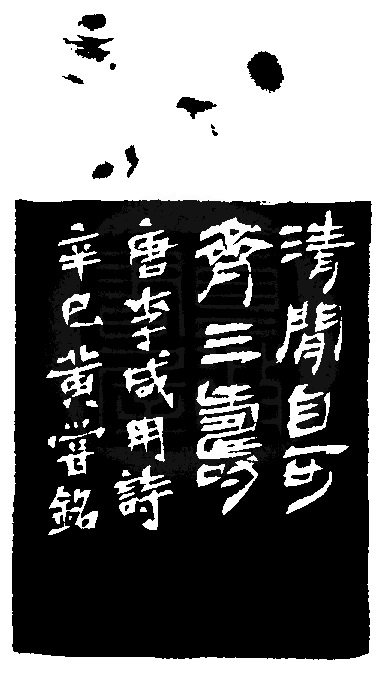 清閒自可
齊三壽
唐李咸用詩
辛巳黃嘗銘